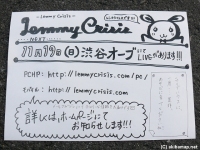 -Lemmy Crisis-
Lemmy Crisis
-NEXT-
11月19日(日)渋谷オーブにて
LIVEがあります!!!
PCHP: http://lemmycrisis.com/pc/
モバイル: http://lemmycrisis.com
詳しくは、ホームページにて
お知らせします!!!
(C) akibamap.net